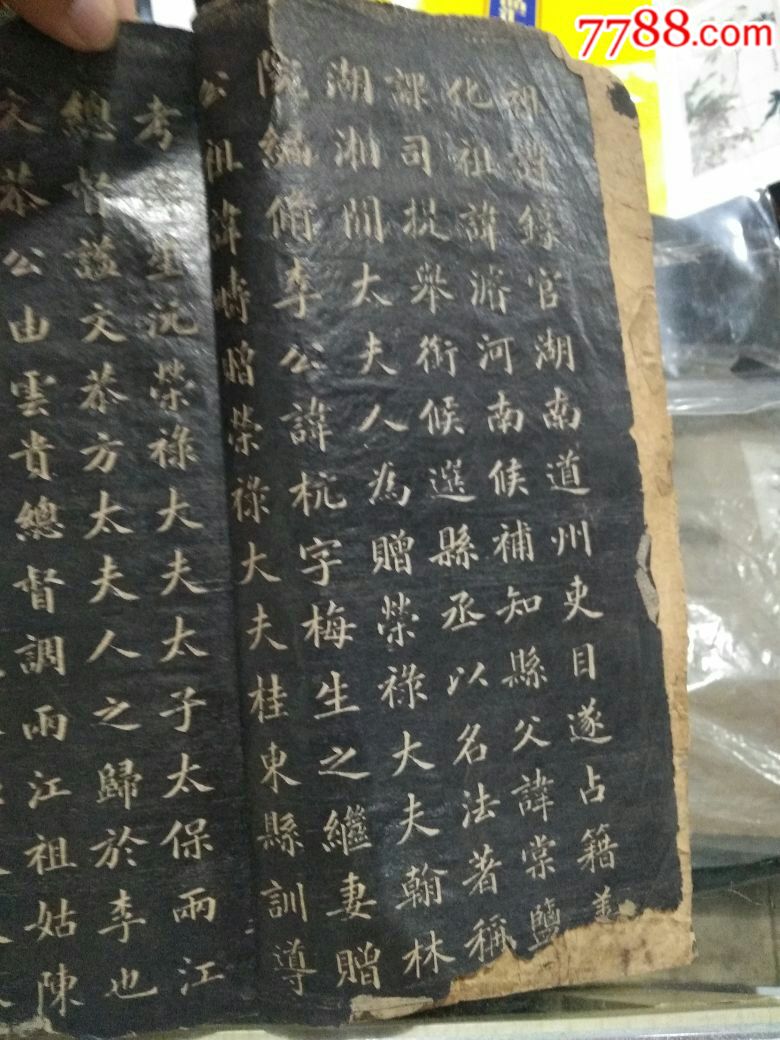 7788.com
初謄錄官湖南道州吏目遂占籍善
化祖諱濟河南候補知縣父諱棠鹽
課司提舉銜候選縣丞以名法著稱
湖湘間太夫人為贈榮祿大夫翰林
院編脩李公諱杭字梅生之繼妻贈
公祖諱疇贈榮祿大夫桂東縣訓導
考諱星沅榮祿大夫太子太保兩江
總督諡文恭方太夫人之歸於李也
文恭公由雲貴總督調兩江祖姑陳